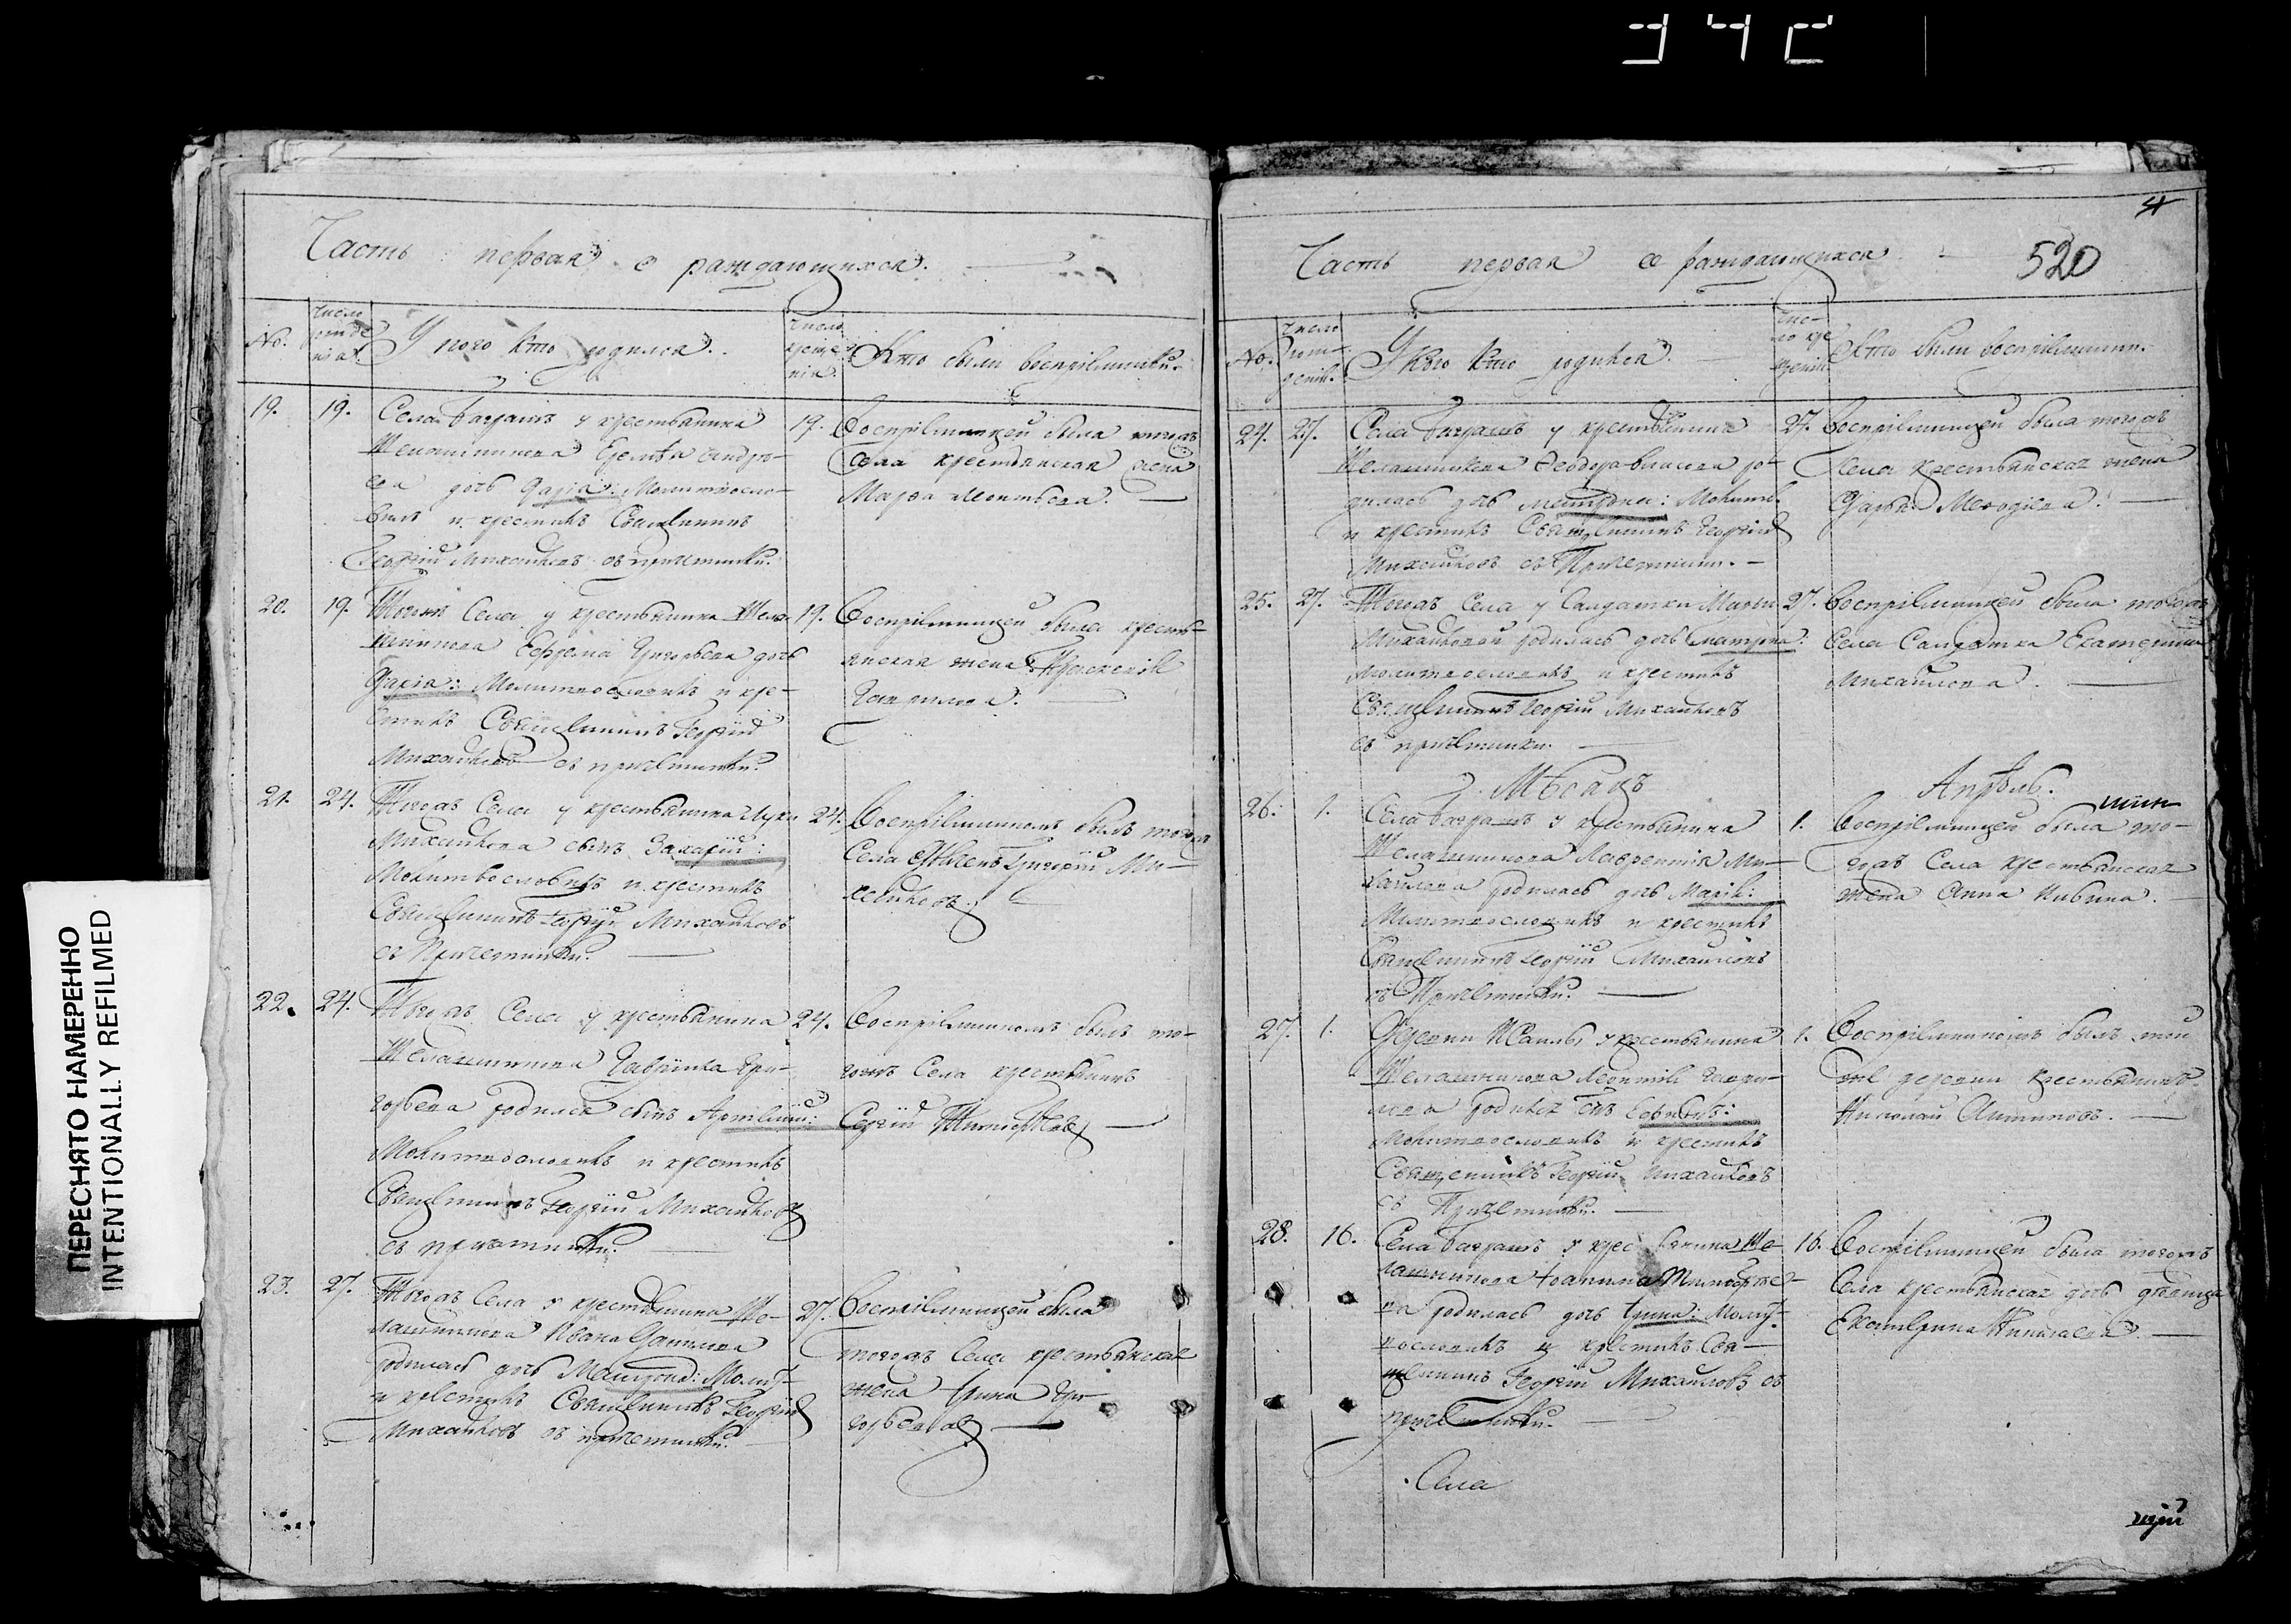 Часть первая о раждающихся.
No.
Число рожде
нiя.
У кого кто родился.
Число
креще
нiя.
Кто были воспрiемники.
19.
19.
Села Багряшъ у крестьянина
Шелашникова
дочь Дарiа: Молитвосло-
вилъ и крестилъ Священникъ
Георгiй Михайловъ съ причетники.
19.
Воспрiемницей была тогожъ
села крестьянская жена
Марфа Леонтьева.
20.
19.
Тогожъ Села у крестьянина Шела-
шникова Ефрема Григорьева дочь
Дарiа: Молитвословилъ и кре-
стилъ Священникъ Георгiй
Михайловъ съ причетники.
19.
Воспрiемницей была кресть-
янская жена
Гаврилова.
21.
24.
Тогожъ Села у крестьянина Луки
Михайлова сынъ Захарiй:
Молитвословилъ и крестилъ
Священникъ Георгiй Михайловъ
съ Причетники.
24.
Воспрiемникомъ былъ тогожъ
Села Григорiй Ми-
хайловъ.
22.
24.
Тогожъ Села у крестьянина
Шелашникова Гаврiила Гри-
горьева родился сынъ Артемiй:
Молитвословилъ и крестилъ
Священникъ Георгiй Михайловъ
съ причетники.
24.
Воспрiемникомъ былъ то-
гожъ Села крестьянинъ
Сергiй
23.
27.
Тогожъ Села у крестьянина Ше-
лашникова Ивана Данилова
родилась дочь Матрона: Молит-
и крестилъ Священникъ Георгiй
Михайловъ съ причетники.
27.
Воспрiемницей была
тогожъ Села крестьянская
жена Ирина Гри-
горьева
520
Часть первая о раждающихся
No.
Число
рож-
денiя.
У кого кто родился.
Чис-
ло кре
щенiя.
Кто были воспрiемники.
24.
27.
Села Багряшъ у крестьянина
Шелашникова Феодора Власова ро-
дилась дочь Матрона: Молитв.
и крестилъ Священникъ Георгiй
Михайловъ съ Причетники.
27.
Воспрiемницей была тогожъ
Села крестьянская жена
Дарья Мефодiева.
25.
27.
Тогожъ Села у Салдатки Марьи
Михайловой родилась дочь Матрона:
молитвословилъ и крестилъ
Священникъ Георгiй Михайловъ
съ причетники.
27.
Воспрiемницей была тогожъ
Села Салдатка Екатерина
Михайлова.
Мѣсяцъ Апрѣль.
26.
1.
Села Багряшъ у крестьянина
Шелашникова Лаврентiя Ми-
хайлова родилась дочь Марiя:
Молитвословилъ и крестилъ
Священникъ Георгiй Михайловъ
съ Причетники.
1.
Воспрiемницей была то-
гожъ Села крестьянская
жена Анна
27.
1.
Деревни у крестьянина
Шелашникова Леонтiя Гаври-
лова родился сынъ
Молитвословилъ и крестилъ
Священникъ Георгiй Михайловъ
съ Причетники.
1.
Воспрiемникомъ былъ той
же деревни крестьянинъ
Николай
28.
16.
Села Багряшъ у крестьянина Ше-
лашникова Iоанна Тимофѣе-
ва родилась дочь Ирина: Молит-
вословилъ и крестилъ Свя-
щенникъ Георгiй Михайловъ съ
причетники.
16.
Воспрiемницей была тогожъ
Села крестьянская дочь дѣвица
Екатерина Николаева.
Села
ПЕРЕСНЯТО НАМЕРЕННО
INTENTIONALLY REFILMED